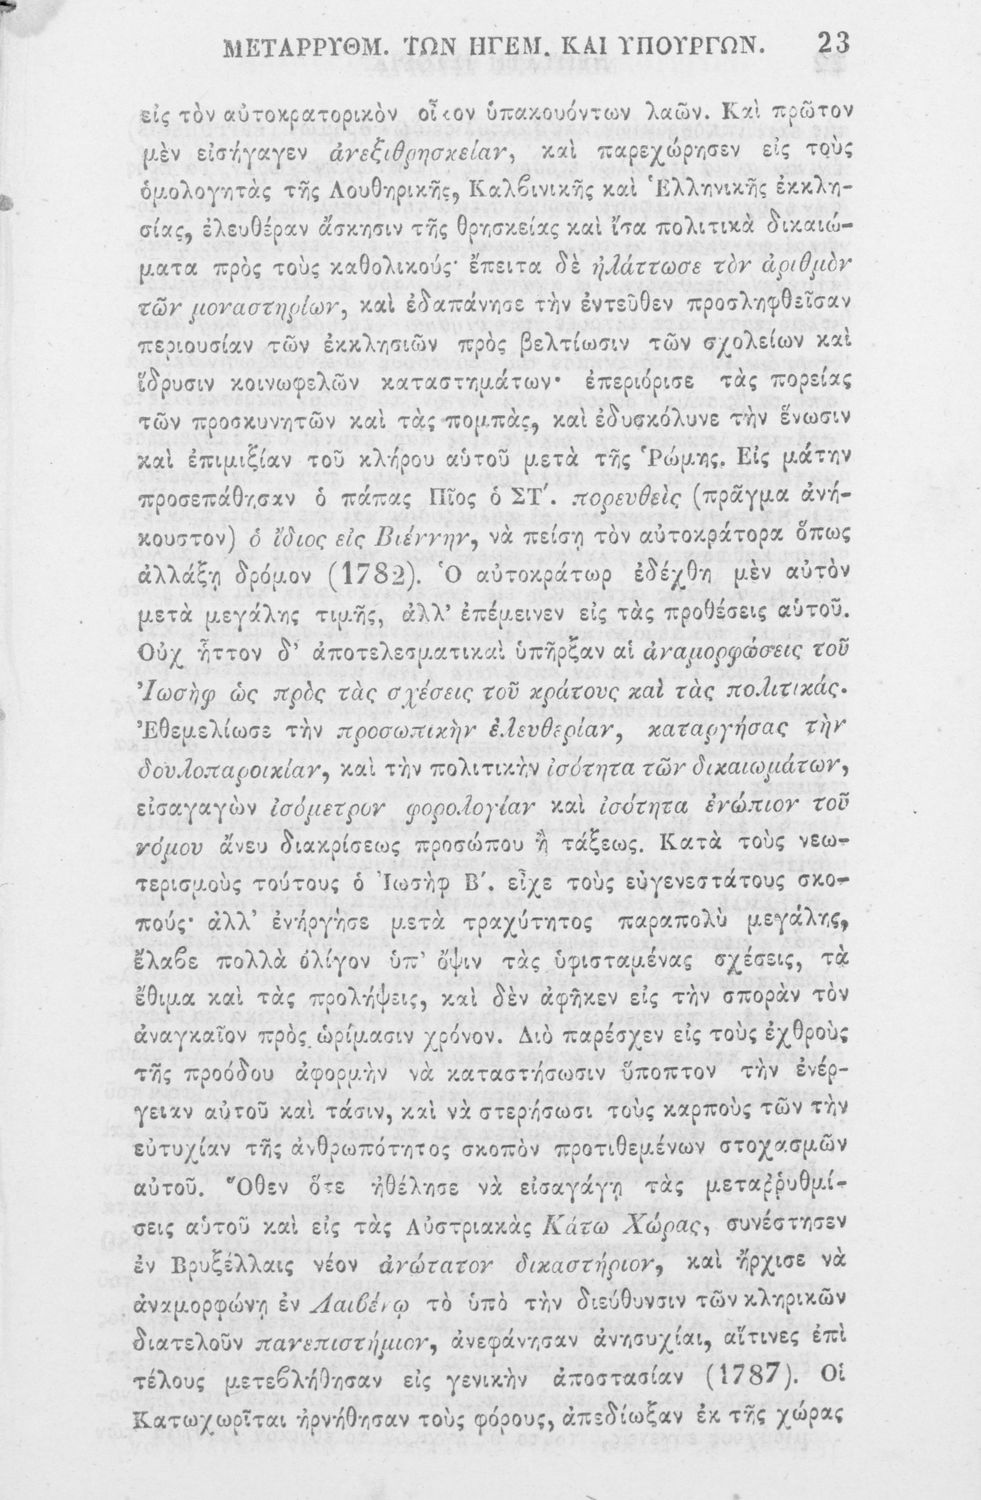 ΜΕΤΑΡΡΥΘΜ. ΤΩΝ ΗΓΕΜ. ΚΑΙ ΥΠΟΥΡΓΩΝ. 23
εἰς τὸν αὐτοκρατορικὸν οἶκον ὑπακουόντων λαῶν. Καὶ πρῶτον
μὲν εἰσήγαγεν ἀνεξιθρησκείαν, καὶ παρεχώρησεν εἰς τοὺς
ὁμολογητὰς τῆς Λουθηρικῆς, Καλβινικῆς καὶ Ἑλληνικῆς ἐκκλη-
σίας, ἐλευθέραν ἄσκησιν τῆς θρησκείας καὶ ἴσα πολιτικὰ δικαιώ-
ματα πρὸς τοὺς καθολικούς· ἔπειτα δὲ ἠλάττωσε τὸν ἀριθμὸν
τῶν μοναστηρίων, καὶ ἐδαπάνησε τὴν ἐντεῦθεν προσληφθεῖσαν
περιουσίαν τῶν ἐκκλησιῶν πρὸς βελτίωσιν τῶν σχολείων καὶ
ἵδρυσιν κοινωφελῶν καταστημάτων· ἐπεριόρισε τὰς πορείας
τῶν προσκυνητῶν καὶ τὰς πομπὰς, καὶ ἐδυσκόλυνε τὴν ἕνωσιν
καὶ ἐπιμιξίαν τοῦ κλήρου αὑτοῦ μετὰ τῆς Ῥώμης. Εἰς μάτην
προσεπάθησαν ὁ πάπας Πῖος ὁ ΣΤ΄. πορευθεὶς (πρᾶγμα ἀνή-
κουστον) ὁ ἴδιος εἰς Βιέννην, νὰ πείσῃ τὸν αὐτοκράτορα ὅπως
ἀλλάξῃ δρόμον (1782). Ὁ αὐτοκράτωρ ἐδέχθη μὲν αὐτὸν
μετὰ μεγάλης τιμῆς, ἀλλ’ ἐπέμεινεν εἰς τὰς προθέσεις αὑτοῦ.
Οὐχ ἧττον δ’ ἀποτελεσματικαὶ ὑπῆρξαν αἱ ἀναμορφώσεις τοῦ
Ἰωσὴφ ὡς πρὸς τὰς σχέσεις τοῦ κράτους καὶ τὰς πολιτικάς.
Ἐθεμελίωσε τὴν προσωπικὴν ἐλευθερίαν, καταργήσας τὴν
δουλοπαροικίαν, καὶ τὴν πολιτικὴν ἰσότητα τῶν δικαιωμάτων,
εἰσαγαγὼν ἰσόμετρον φορολογίαν καὶ ἰσότητα ἐνώπιον τοῦ
νόμου ἄνευ διακρίσεως προσώπου ἢ τάξεως. Κατὰ τοὺς νεω-
τερισμοὺς τούτους ὁ Ἰωσὴφ Β΄. εἶχε τοὺς εὐγενεστάτους σκο-
πούς· ἀλλ’ ἐνήργησε μετὰ τραχύτητος παραπολὺ μεγάλης,
ἔλαβε πολλὰ ὀλίγον ὑπ’ ὄψιν τὰς ὑφισταμένας σχέσεις, τὰ
ἔθιμα καὶ τὰς προλήψεις, καὶ δὲν ἀφῆκεν εἰς τὴν σπορὰν τὸν
ἀναγκαῖον πρὸς ὡρίμασιν χρόνον. Διὸ παρέσχεν εἰς τοὺς ἐχθροὺς
τῆς προόδου ἀφορμὴν νὰ καταστήσωσιν ὕποπτον τὴν ἐνέρ-
γειαν αὐτοῦ καὶ τάσιν, καὶ νὰ στερήσωσι τοὺς καρποὺς τῶν τὴν
εὐτυχίαν τῆς ἀνθρωπότητος σκοπὸν προτιθεμένων στοχασμῶν
αὐτοῦ. Ὅθεν ὅτε ἠθέλησε νὰ εἰσαγάγῃ τὰς μεταῤῥυθμί-
σεις αὑτοῦ καὶ εἰς τὰς Αὐστριακὰς Κάτω Χώρας, συνέστησεν
ἐν Βρυξέλλαις νέον ἀνώτατον δικαστήριον, καὶ ἤρχισε νὰ
ἀναμορφώνῃ ἐν Λαιβένῳ τὸ ὑπὸ τὴν διεύθυνσιν τῶν κληρικῶν
διατελοῦν πανεπιστήμιον, ἀνεφάνησαν ἀνησυχίαι, αἵτινες ἐπὶ
τέλους μετεβλήθησαν εἰς γενικὴν ἀποστασίαν (1787). Οἱ
Κατωχωρῖται ἠρνήθησαν τοὺς φόρους, ἀπεδίωξαν ἐκ τῆς χώρας